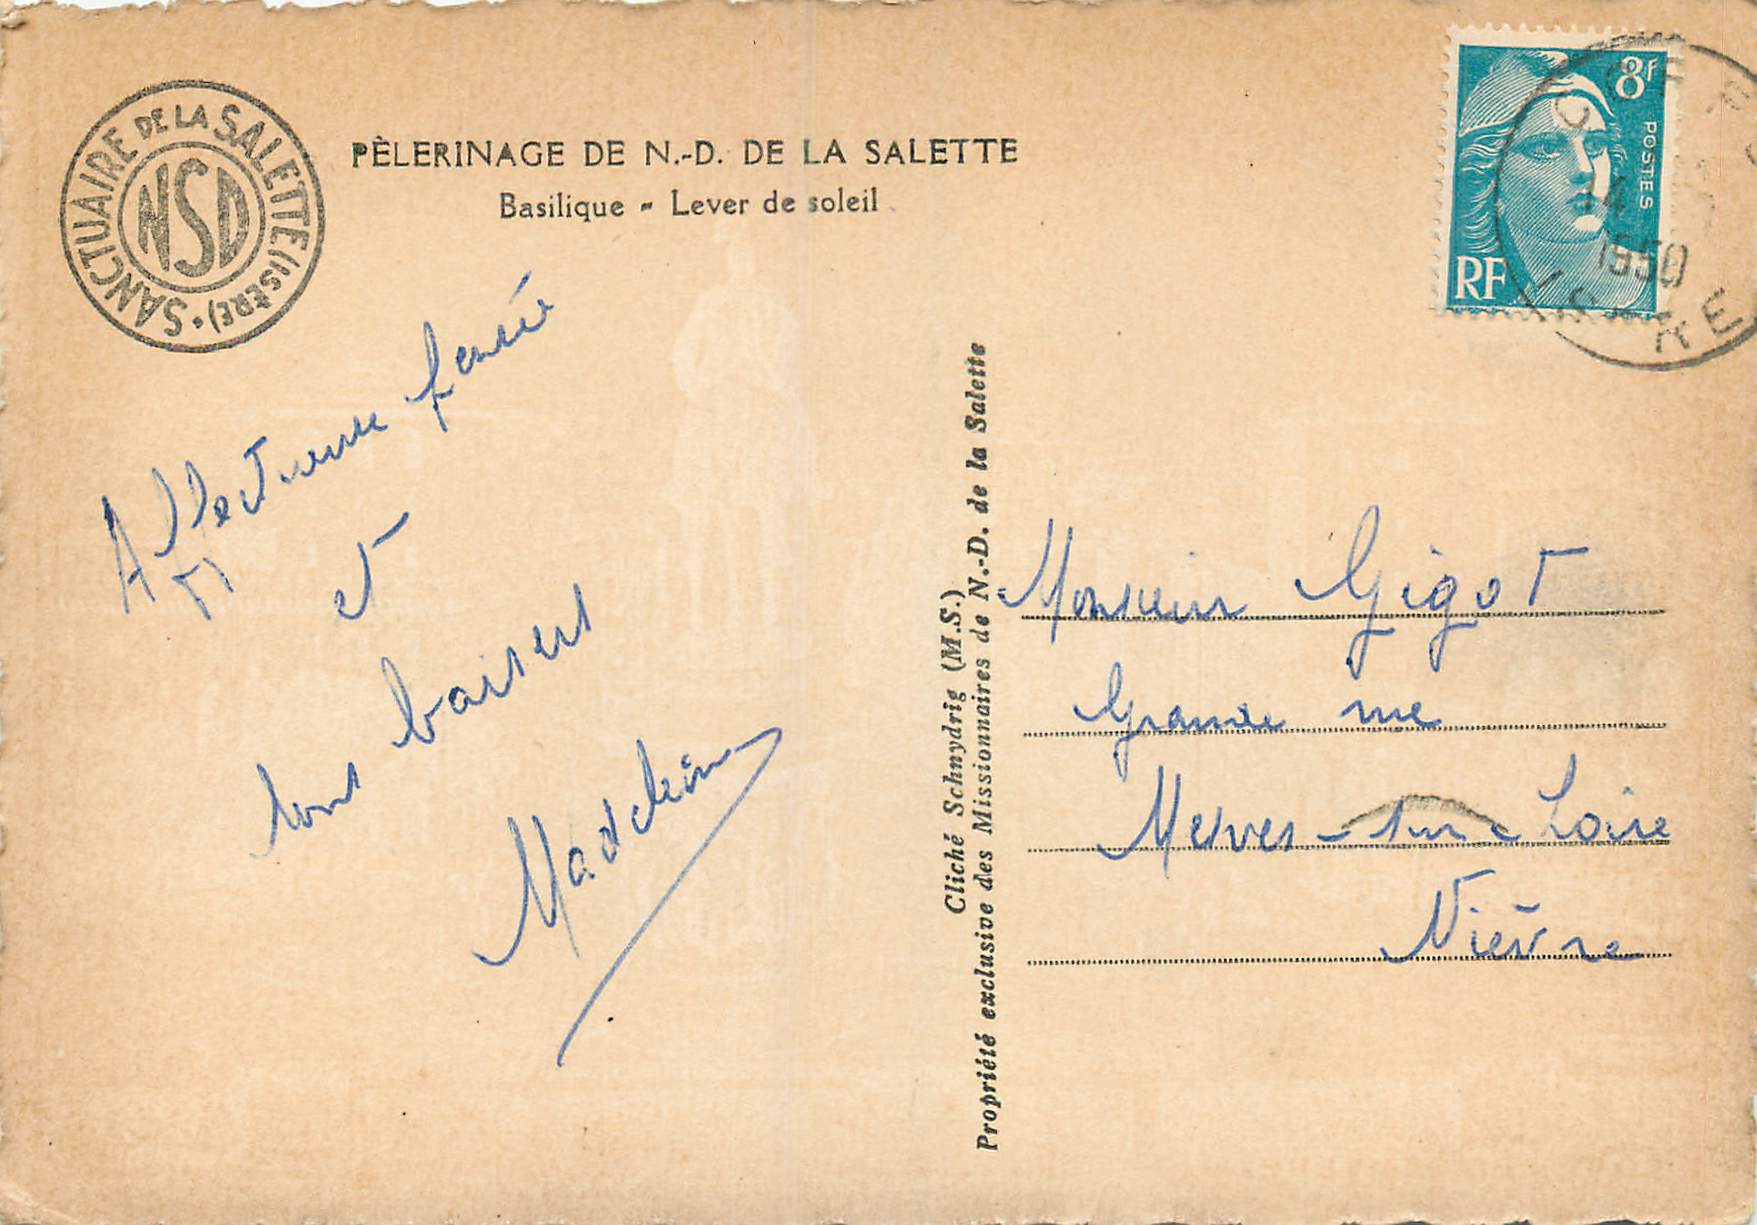 SANCTUAIRE DE LA SALETTE (ISÈRE).
NSD
PÈLERINAGE DE N.-D. DE LA SALETTE
Basilique - Lever de soleil
8f
POSTES
RF
14
1950
ISERE
Affectueuse pensée
et
bons baisers
Madeleine
Cliché Schnydrig (M.S.)
Propriété exclusive des Missionnaires de N.-D. de la Salette
Monsieur Gigot
Grande rue
Mesves-sur-Loire
Nièvre